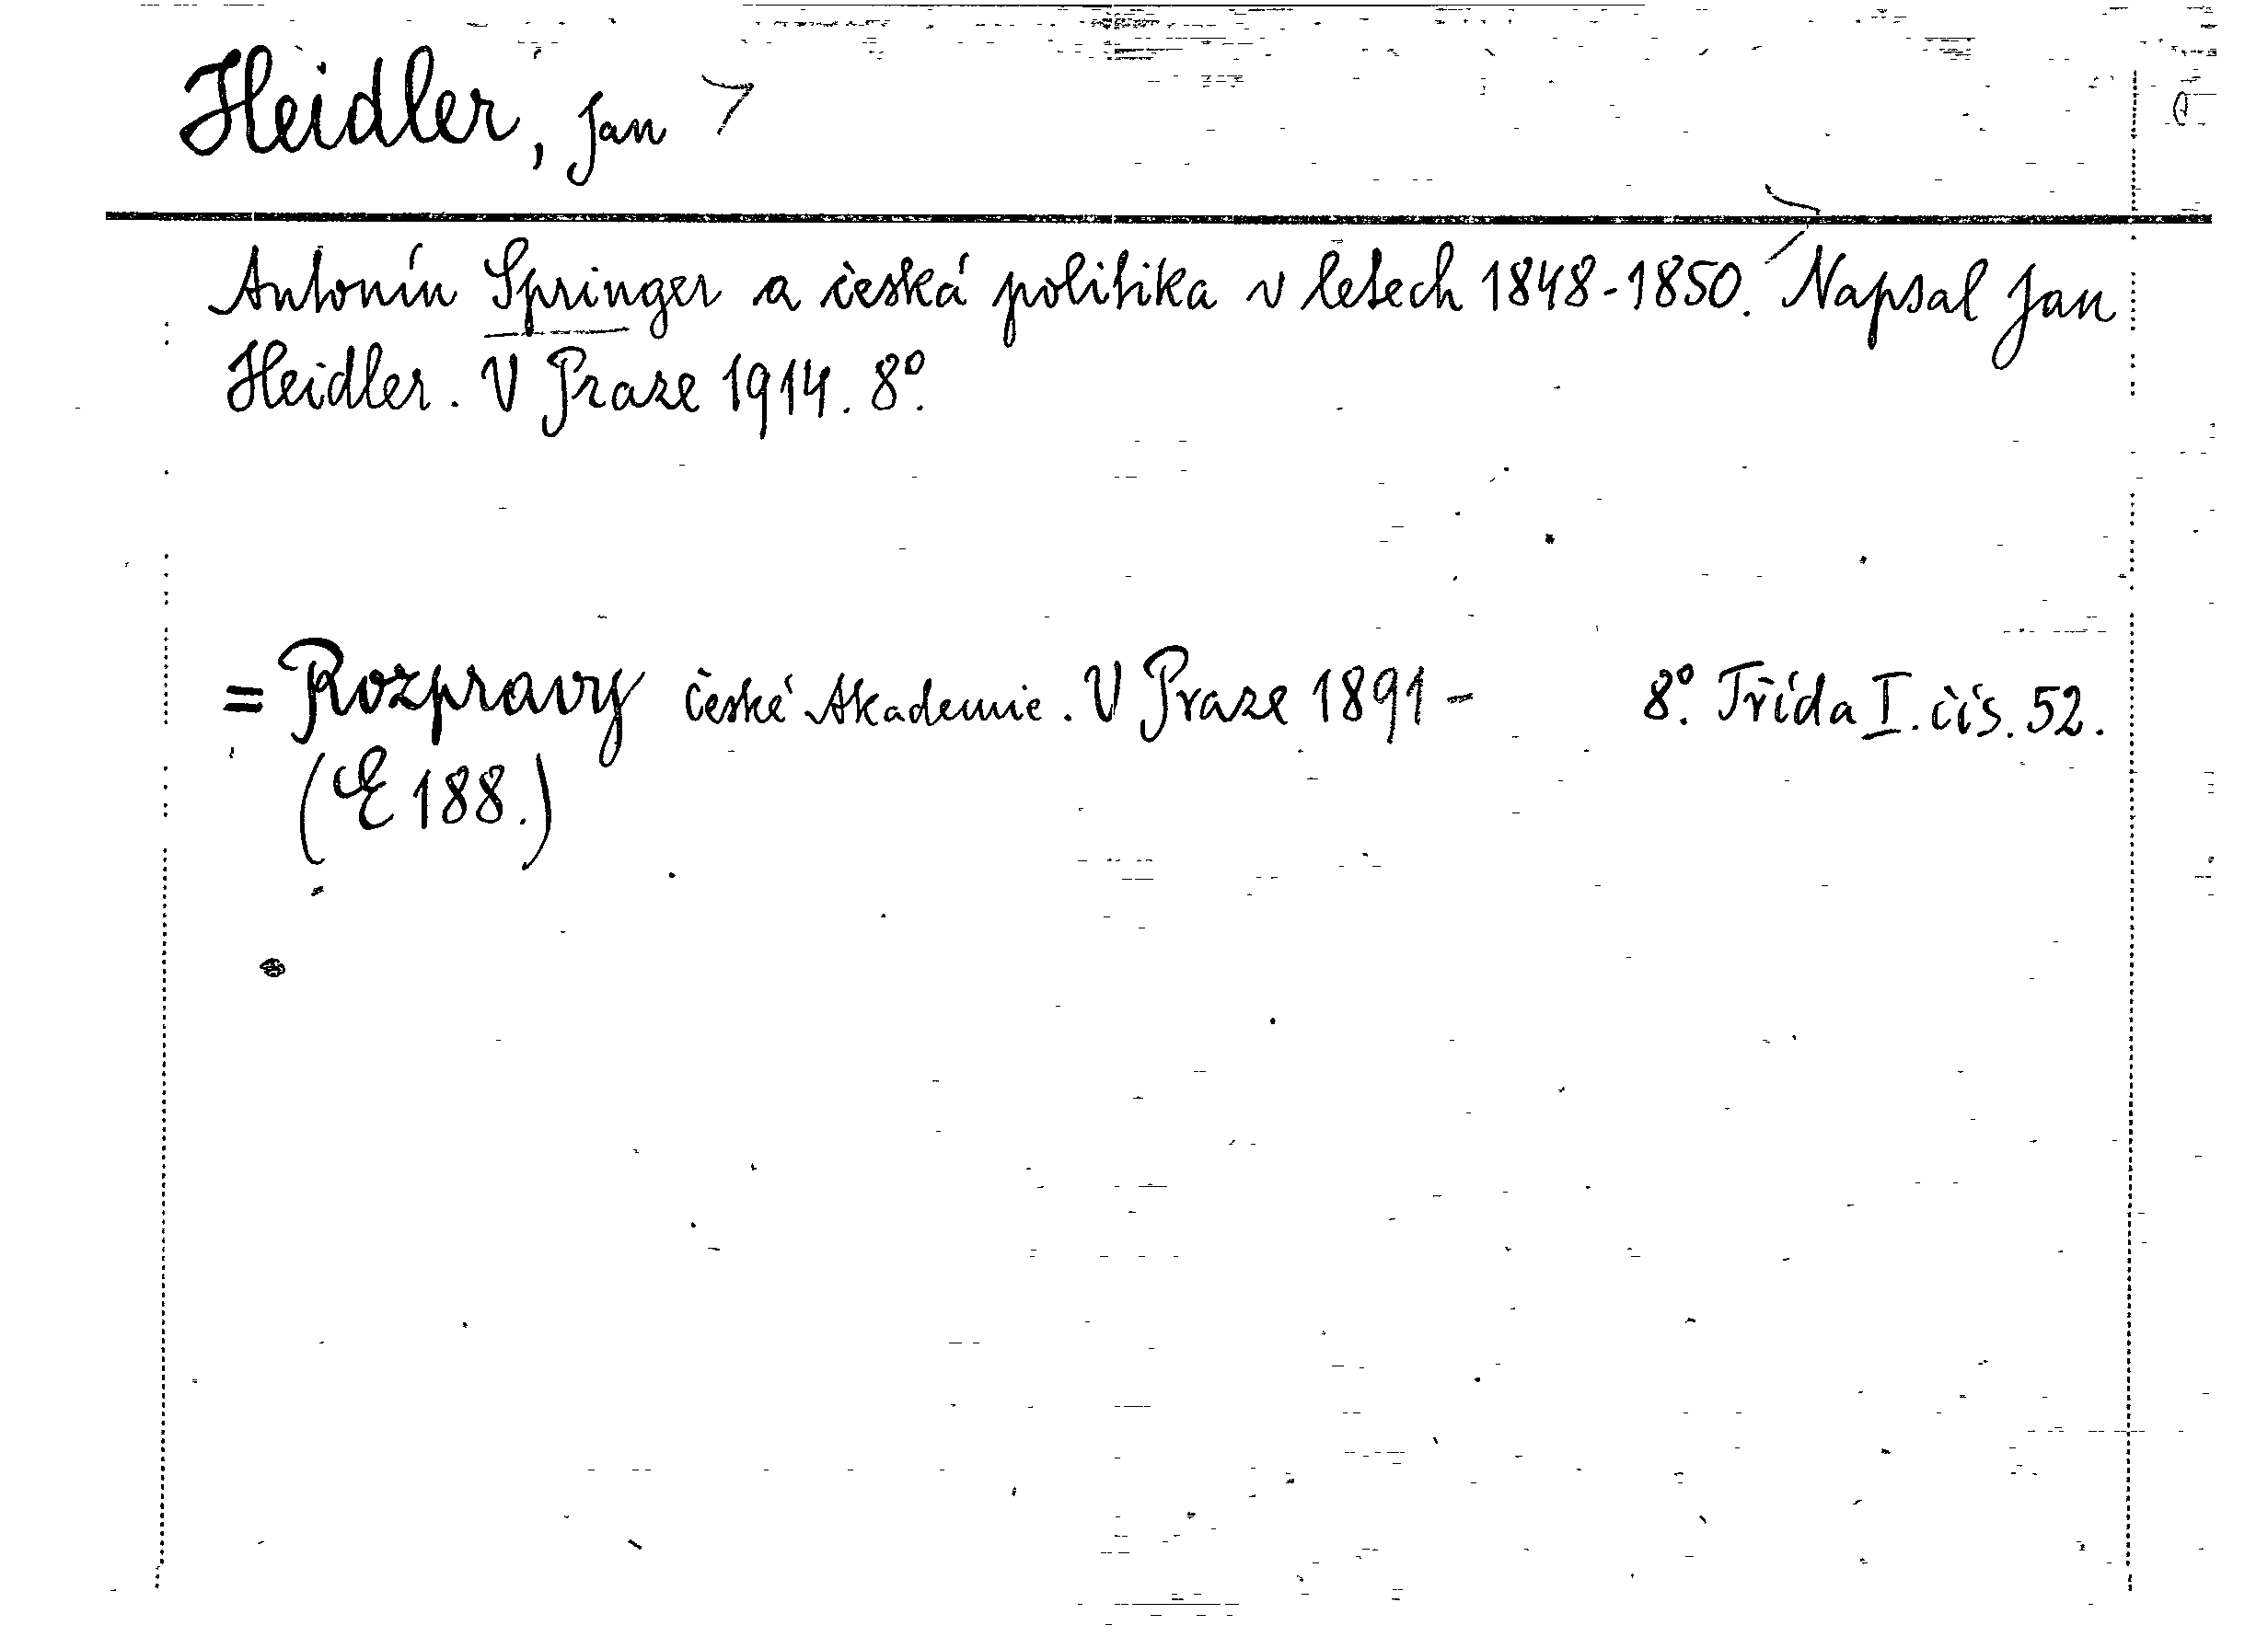 Heidler, Jan
Antonín Springer a česká politika v letech 1848-1850. Napsal Jan
Heidler. V Praze 1914. 8º.
= Rozpravy České Akademie. V Praze 1891- 8º. Třída I. čís. 52.
(E 188.)